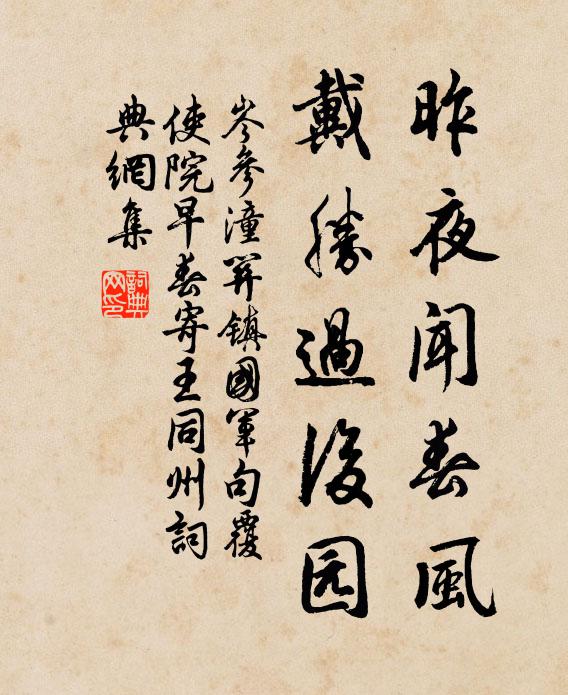 昨夜聞春風
戴勝過後园
岑參潼關鎮國軍句覆
使院早春寄王同州詞
典網集
詞典網印